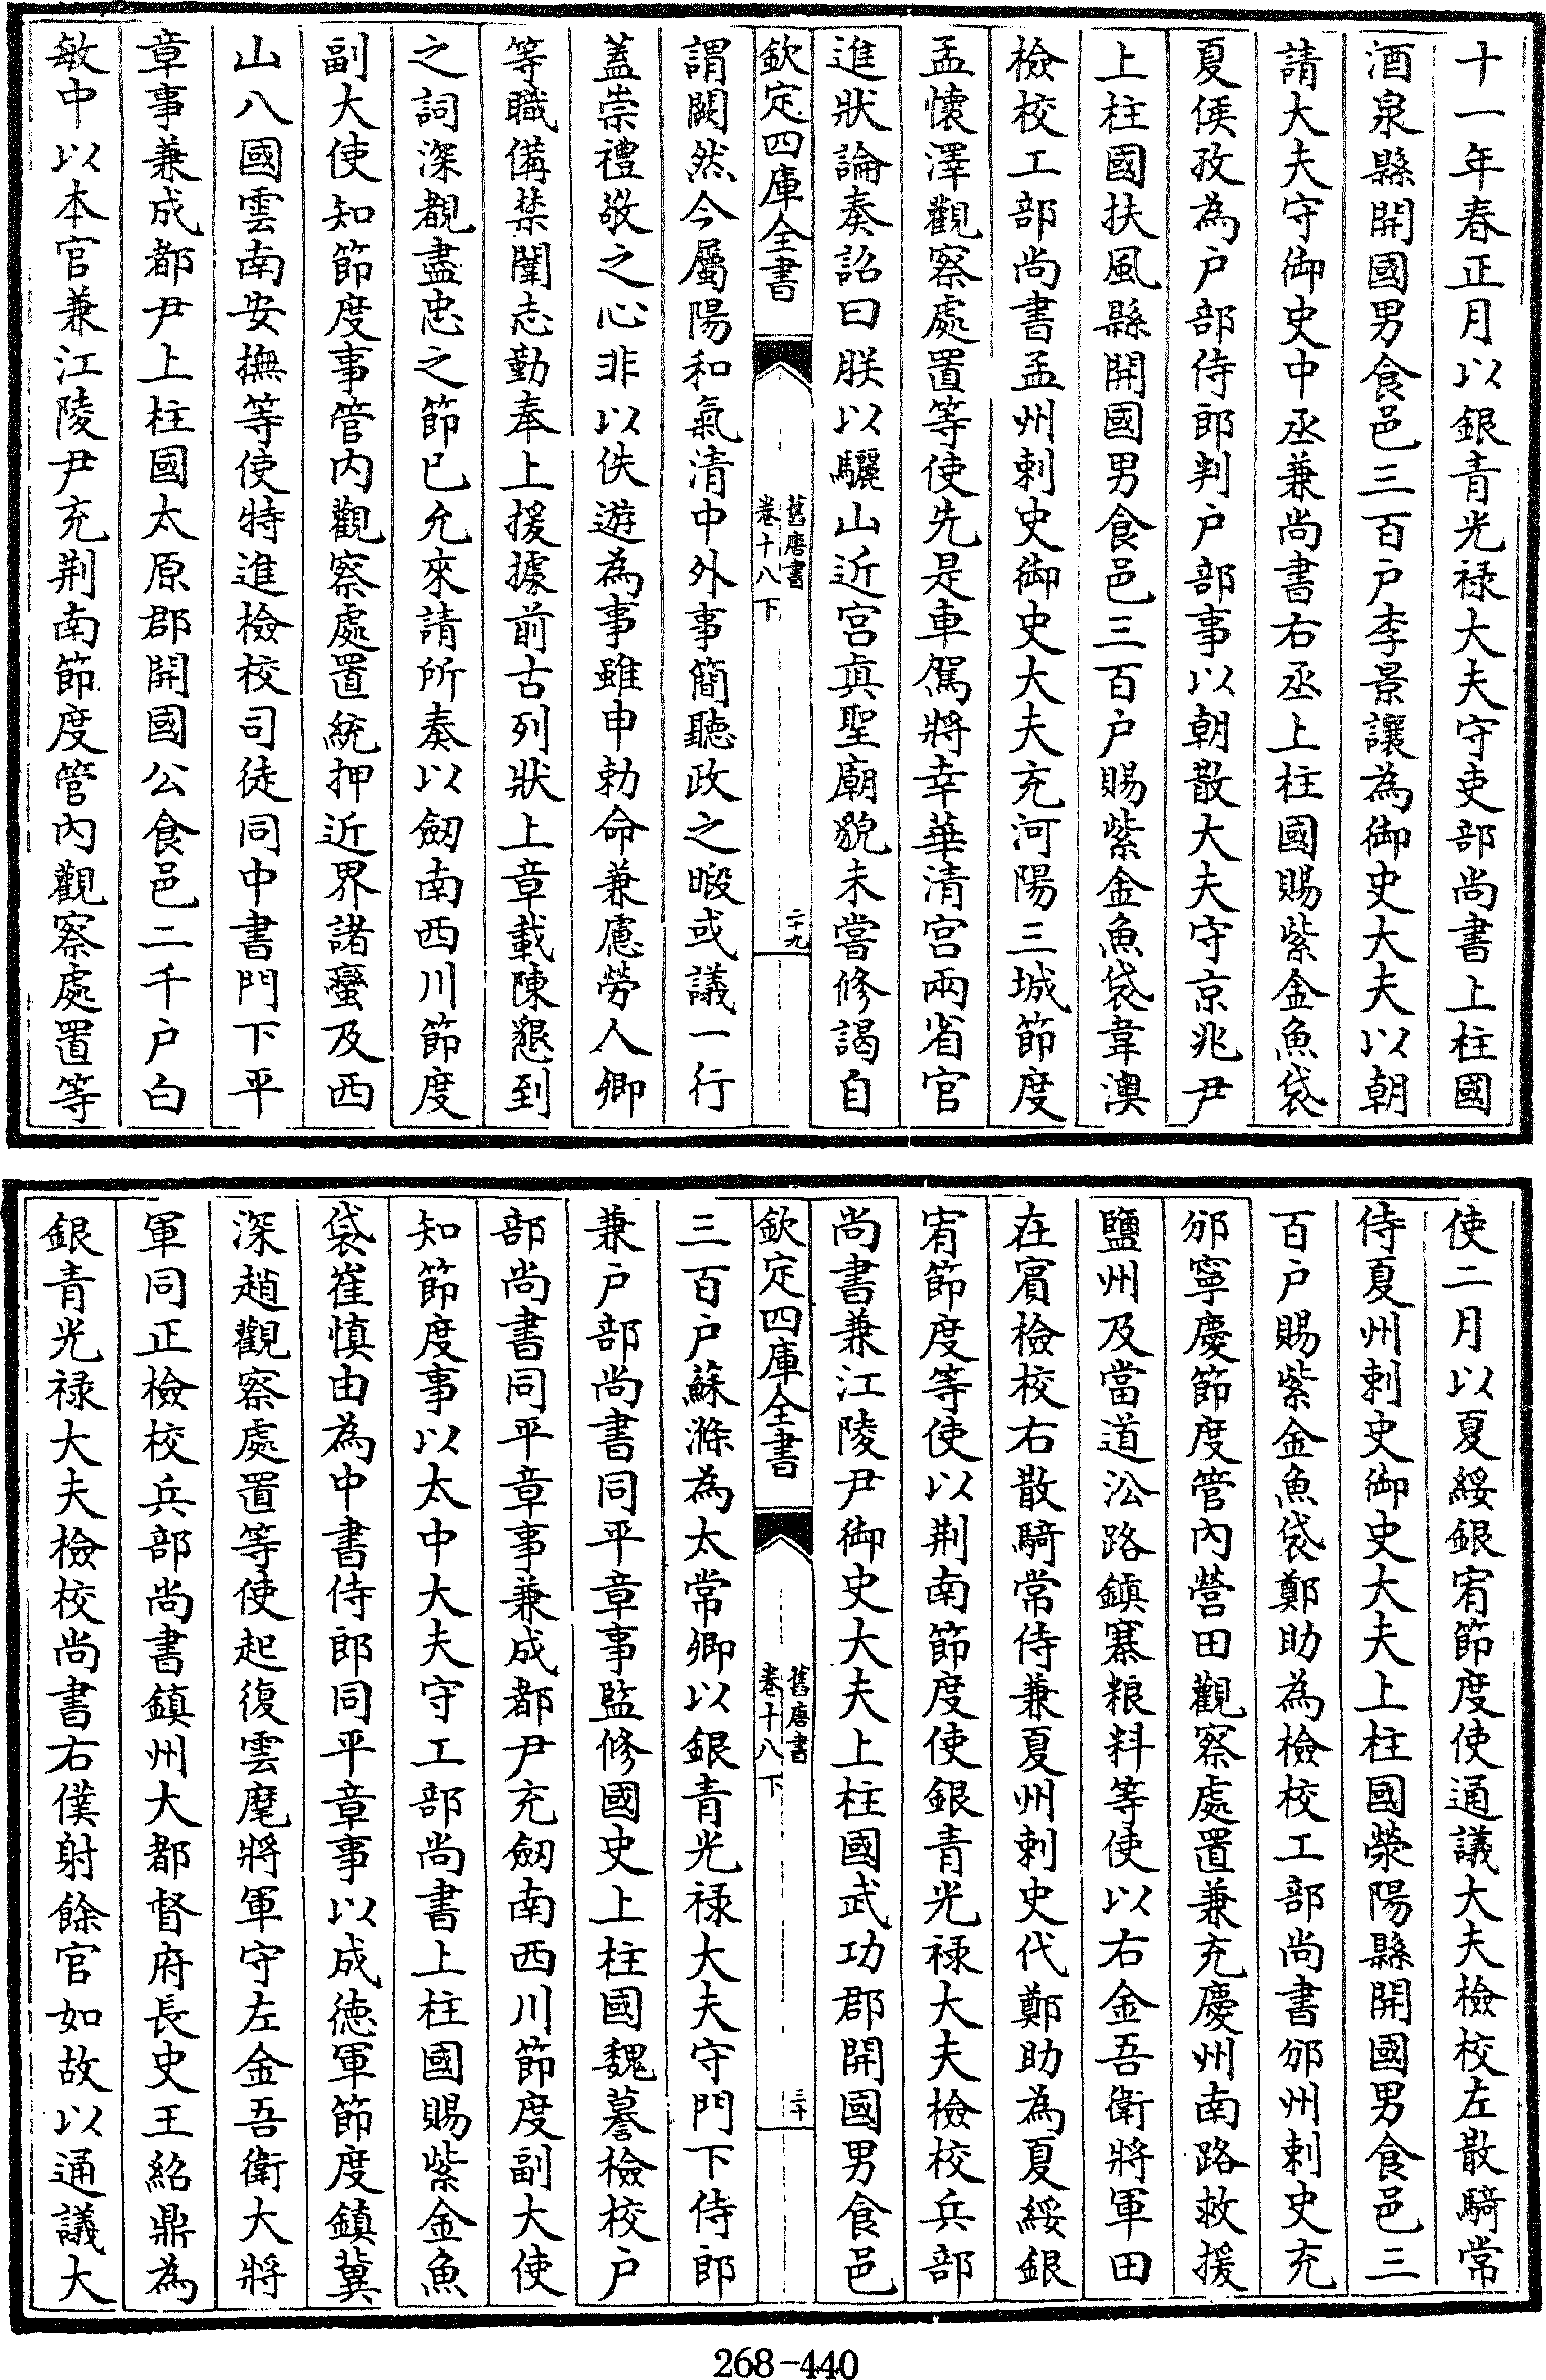 十一年春正月以銀青光禄大夫守吏部尚書上柱國
酒泉縣開國男食邑三百户李景讓為御史大夫以朝
請大夫守御史中丞兼尚書右丞上柱國賜紫金魚袋
夏侯孜為户部侍郎判户部事以朝散大夫守京兆尹
上柱國扶風縣開國男食邑三百户賜紫金魚袋韋澳
檢校工部尚書孟州刺史御史大夫充河陽三城節度
孟懷澤觀察處置等使先是車駕將幸華清宫兩省官
進狀論奏詔曰朕以驪山近宫真聖廟貌未嘗修謁自
欽定四庫全書
舊唐書
卷十八下
二十九
謂闕然今屬陽和氣清中外事簡聽政之暇或議一行
蓋崇禮敬之心非以佚遊為事雖申勅命兼慮勞人卿
等職備禁闈志勤奉上援據前古列狀上章載陳懇到
之詞深覩盡忠之節已允來請所奏以劒南西川節度
副大使知節度事管内觀察處置統押近界諸蠻及西
山八國雲南安撫等使特進檢校司徒同中書門下平
章事兼成都尹上柱國太原郡開國公食邑二千户白
敏中以本官兼江陵尹充荆南節度管内觀察處置等
使二月以夏綏銀宥節度使通議大夫檢校左散騎常
侍夏州刺史御史大夫上柱國滎陽縣開國男食邑三
百户賜紫金魚袋鄭助為檢校工部尚書邠州刺史充
邠寧慶節度管内營田觀察處置兼充慶州南路救援
鹽州及當道沿路鎮寨粮料等使以右金吾衛將軍田
在賓檢校右散騎常侍兼夏州刺史代鄭助為夏綏銀
宥節度等使以荆南節度使銀青光禄大夫檢校兵部
尚書兼江陵尹御史大夫上柱國武功郡開國男食邑
欽定四庫全書
舊唐書
卷十八下
三十
三百户蘇滌為太常卿以銀青光禄大夫守門下侍郎
兼户部尚書同平章事監修國史上柱國魏謩檢校户
部尚書同平章事兼成都尹充劒南西川節度副大使
知節度事以太中大夫守工部尚書上柱國賜紫金魚
袋崔慎由為中書侍郎同平章事以成徳軍節度鎮冀
深趙觀察處置等使起復雲麾將軍守左金吾衛大將
軍同正檢校兵部尚書鎮州大都督府長史王紹鼎為
銀青光禄大夫檢校尚書右僕射餘官如故以通議大
268-440